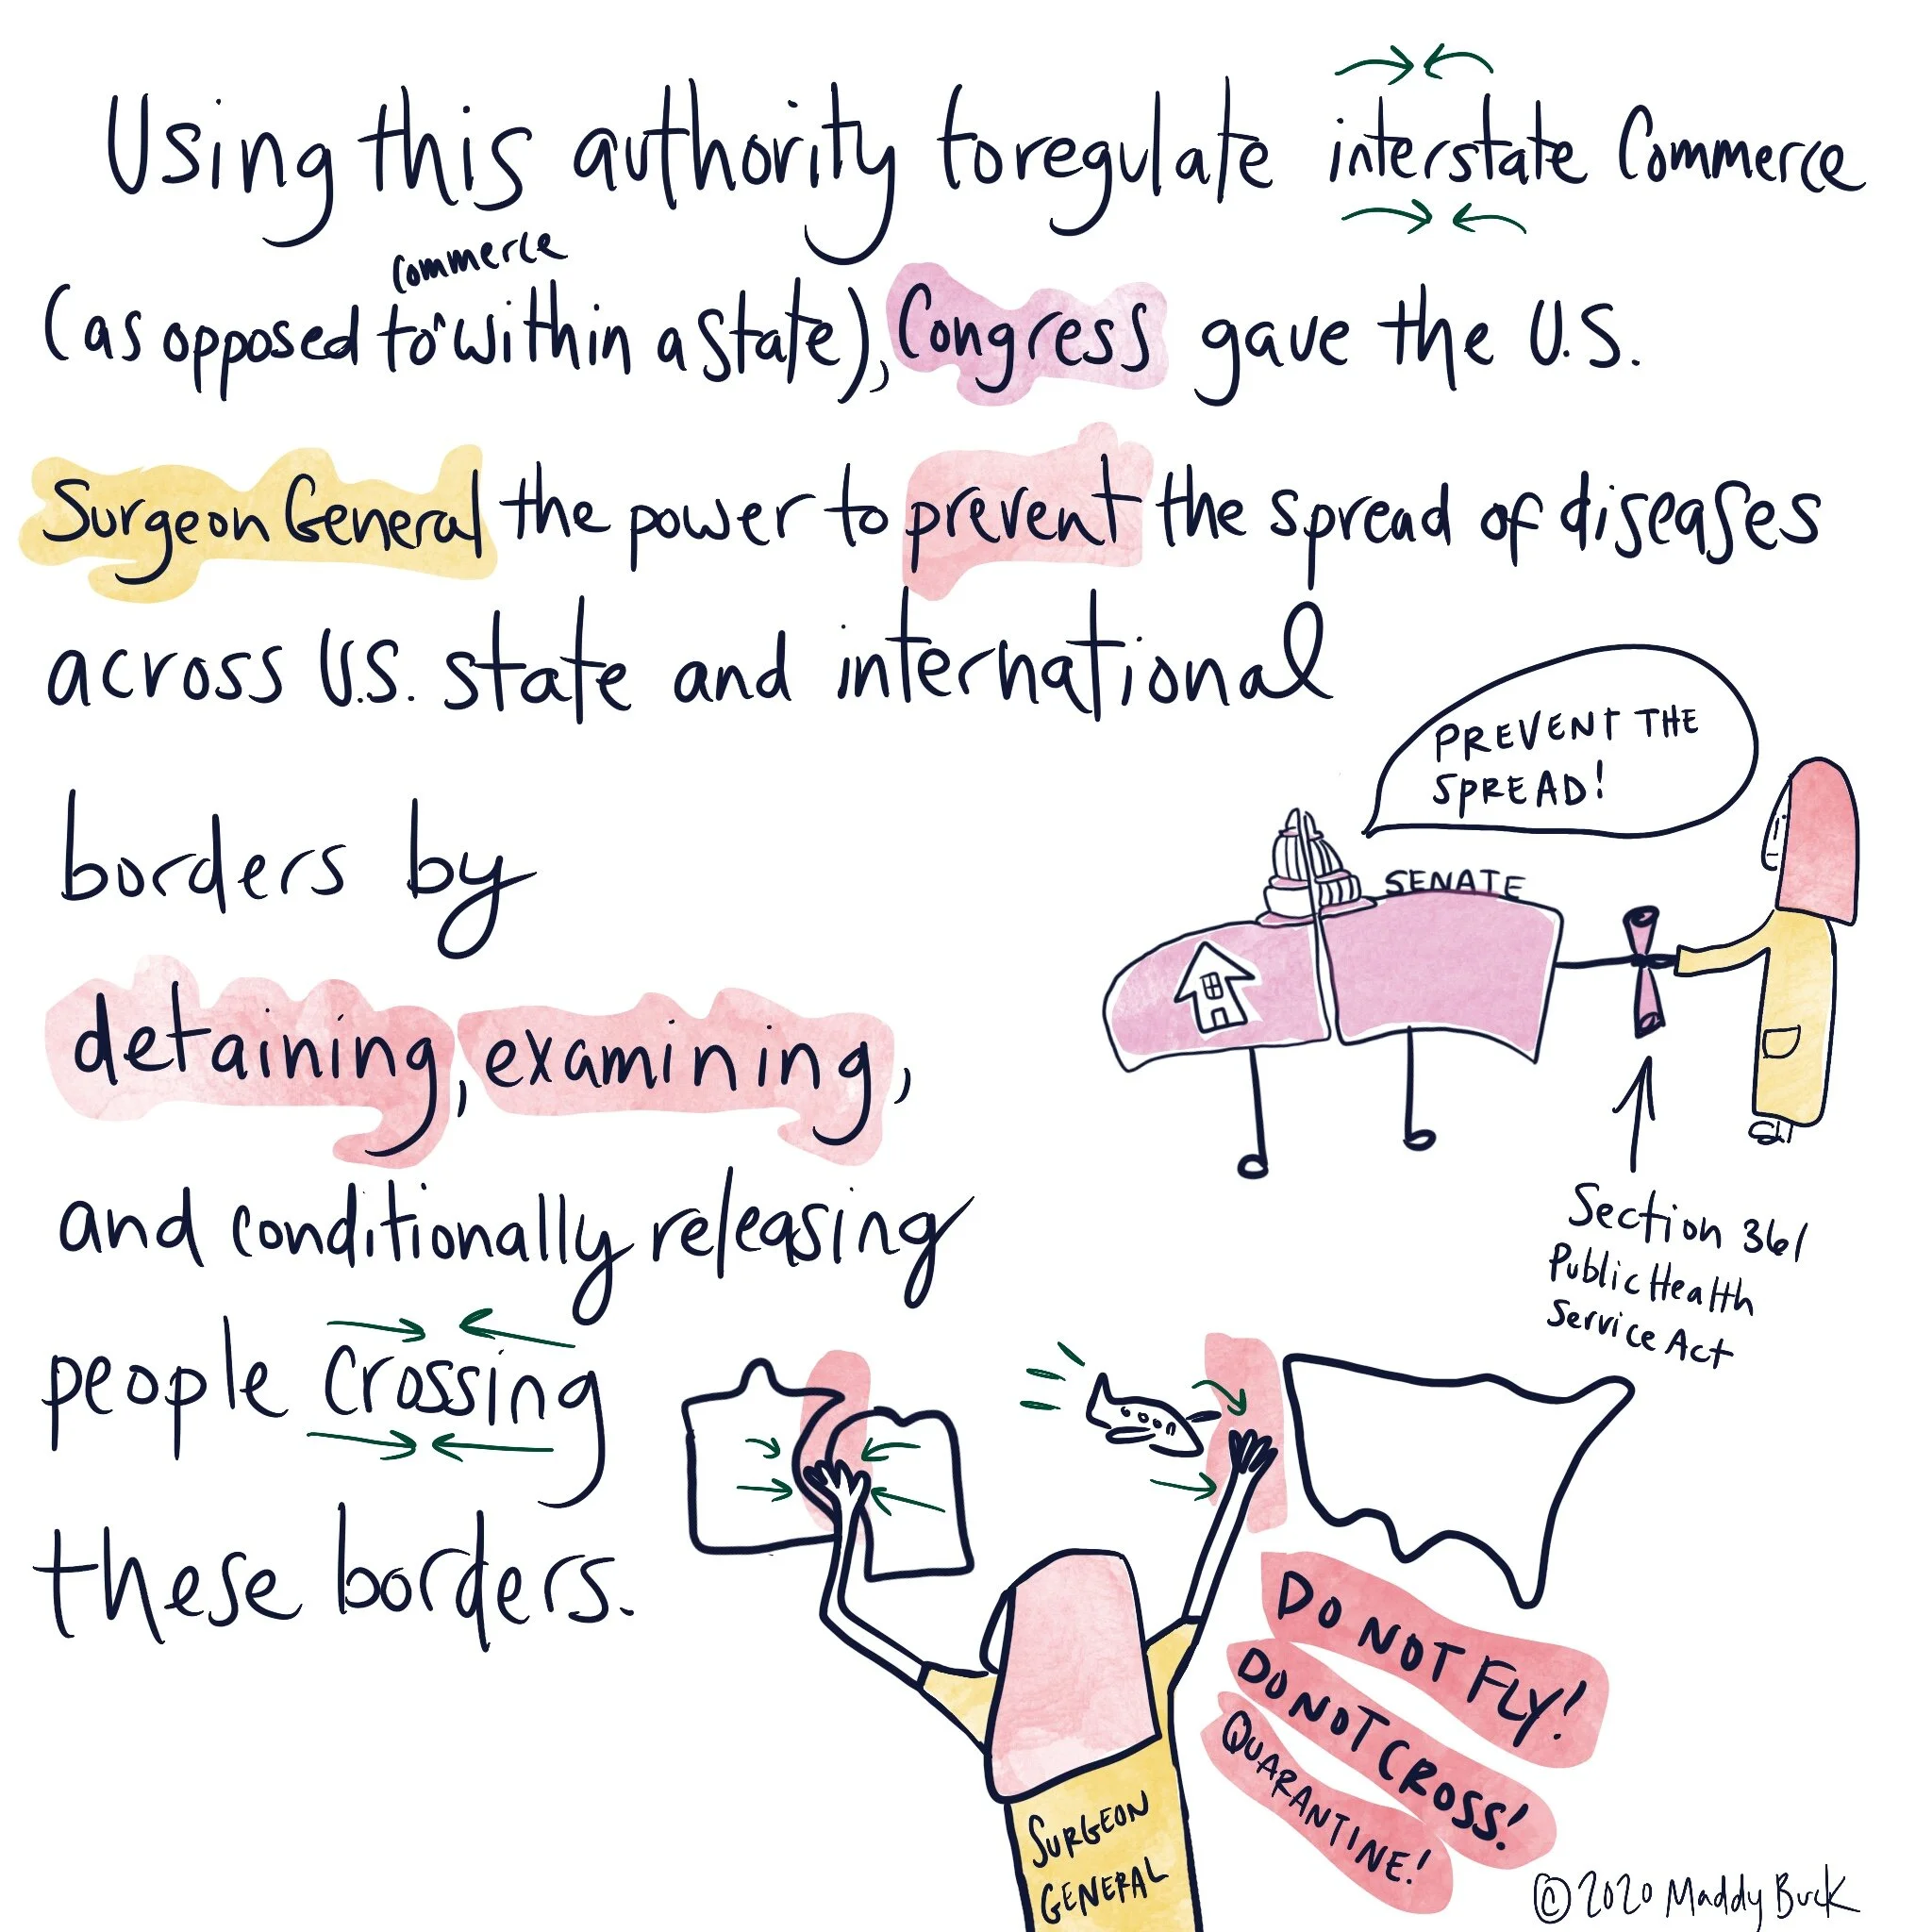 Using this authority to regulate interstate Commerce
commerce
(as opposed to ^ within a state), Congress gave the U.S.
Surgeon General the power to prevent the spread of diseases
across U.S. state and international
borders by
detaining, examining,
and conditionally releasing
people crossing
these borders.
PREVENT THE
SPREAD!
SENATE
Section 361
Public Health
Service Act
DO NOT FLY!
DO NOT CROSS!
QUARANTINE!
SURGEON
GENERAL
© 2020 Maddy Buck